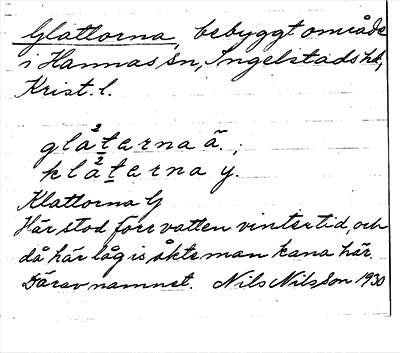 Glattorna, bebyggt område
i Hannas sn, Ingelstads hd,
Krist. l.
gla²tərna ä.;
kla²tərna y.
Klattorna G
Här stod förr vatten vintertid, och
då här låg is åkte man kana här
Därav namnet. Nils Nilsson 1930